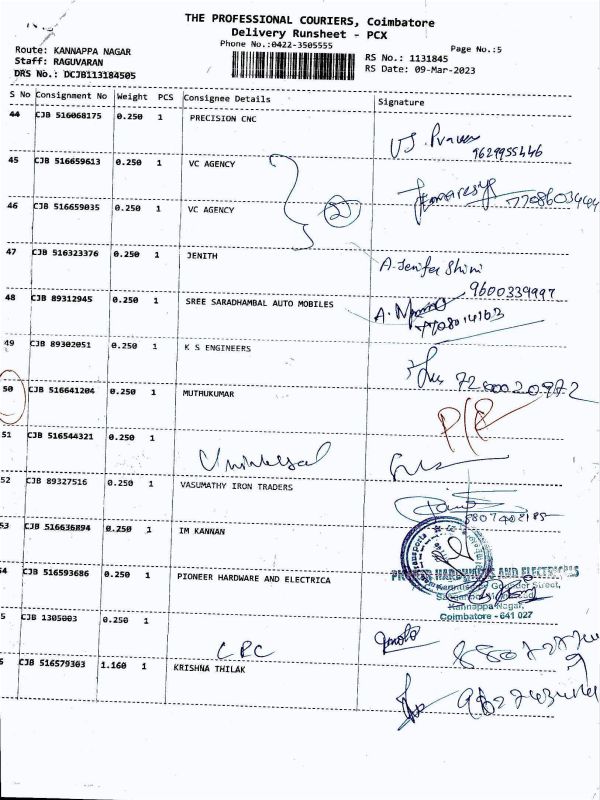 THE PROFESSIONAL COURIERS, Coimbatore
Delivery Runsheet - PCX
Phone No.:0422-3505555
Page No.:5
Route: KANNAPPA NAGAR
Staff: RAGUVARAN
DRS No.: DCJB113184505
RS No.: 1131845
RS Date: 09-Mar-2023
S No Consignment No Weight PCS Consignee Details Signature
44 CJB 516068175 0.250 1 PRECISION CNC
9629955446
45 CJB 516659613 0.250 1 VC AGENCY
2
46 CJB 516659035 0.250 1 VC AGENCY
47 CJB 516323376 0.250 1 JENITH
A. Jenifer Shini
9600339997
48 CJB 89312945 0.250 1 SREE SARADHAMBAL AUTO MOBILES
49 CJB 89302051 0.250 1 K S ENGINEERS
50 CJB 516641204 0.250 1 MUTHUKUMAR
51 CJB 516544321 0.250 1
Universal
52 CJB 89327516 0.250 1 VASUMATHY IRON TRADERS
53 CJB 516636894 0.250 1 IM KANNAN
54 CJB 516593686 0.250 1 PIONEER HARDWARE AND ELECTRICA
PIONEER HARDWARE AND ELECTRICALS
Kannappa Nagar,
Coimbatore - 641 027
5 CJB 1305003 0.250 1
CPC
6 CJB 516579303 1.160 1 KRISHNA THILAK